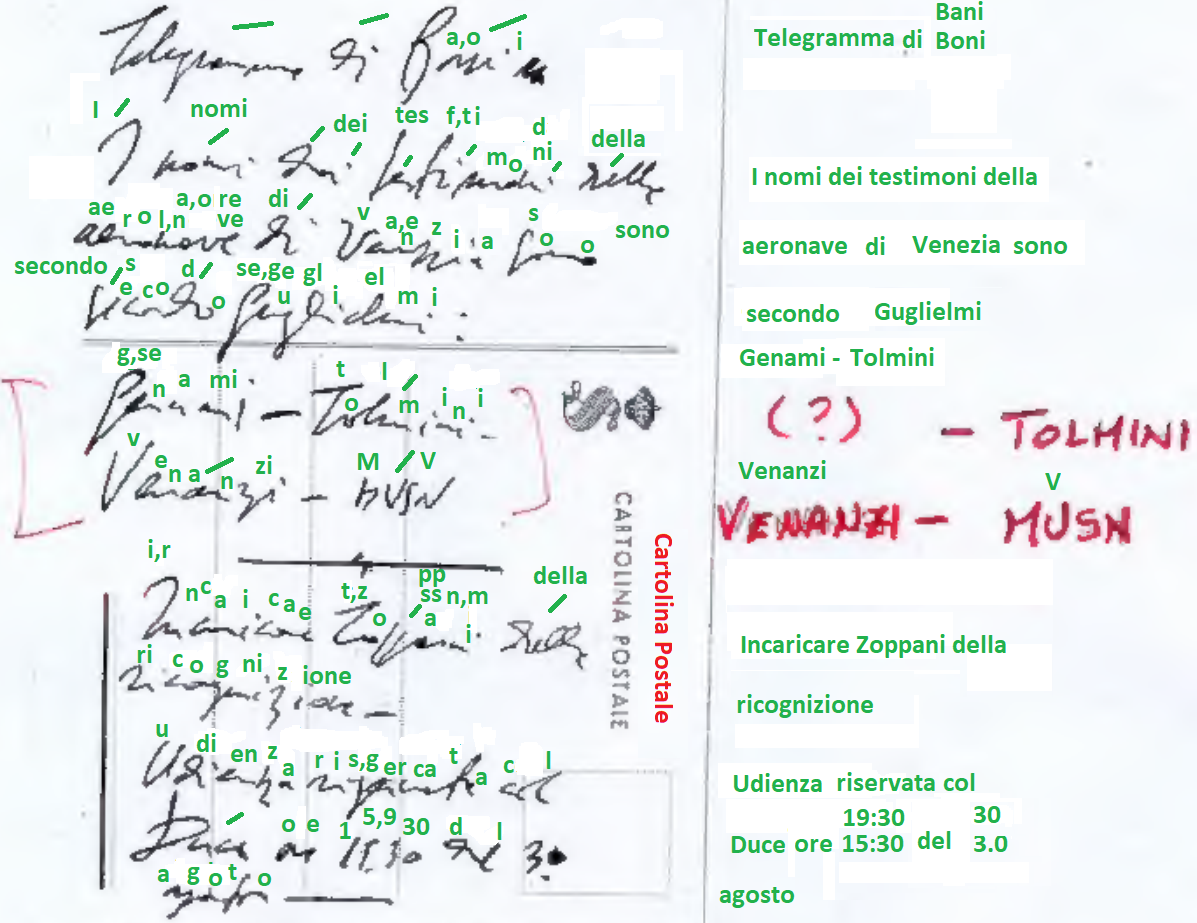 Bani
Telegramma di Boni
a,o i
Telegramma di
I nomi dei tes f,ti d
mo ni della
I nomi dei testimoni della
I nomi dei testimoni della
ae r o l,n a,o re ve di v a,e n z i a s o o sono
aeronave di Venezia sono
aeronave di Venezia sono
secondo s e c o d o se,ge gl u i el m i
secondo Guglielmi:
secondo Guglielmi
g,se n a mi t o l m i n i
Genami - Tolmini
Genami - Tolmini
(?) - TOLMINI
v e n a n zi M V
Venanzi - MUSN
Venanzi V
VENANZI - MUSN
CARTOLINA POSTALE
Cartolina Postale
i,r n c a i c a e t,z o pp ss a n,m i della
Incaricare Zoppani della
Incaricare Zoppani della
ri c o g ni z ione
ricognizione -
ricognizione
u di en z a r i s,g er ca t a c l
Udienza riservata col
Udienza riservata col
19:30 30
o e 1 5,9 30 d l
Duce ore 15.30 del 30
Duce ore 15:30 del 3.0
a g o t o
agosto
agosto